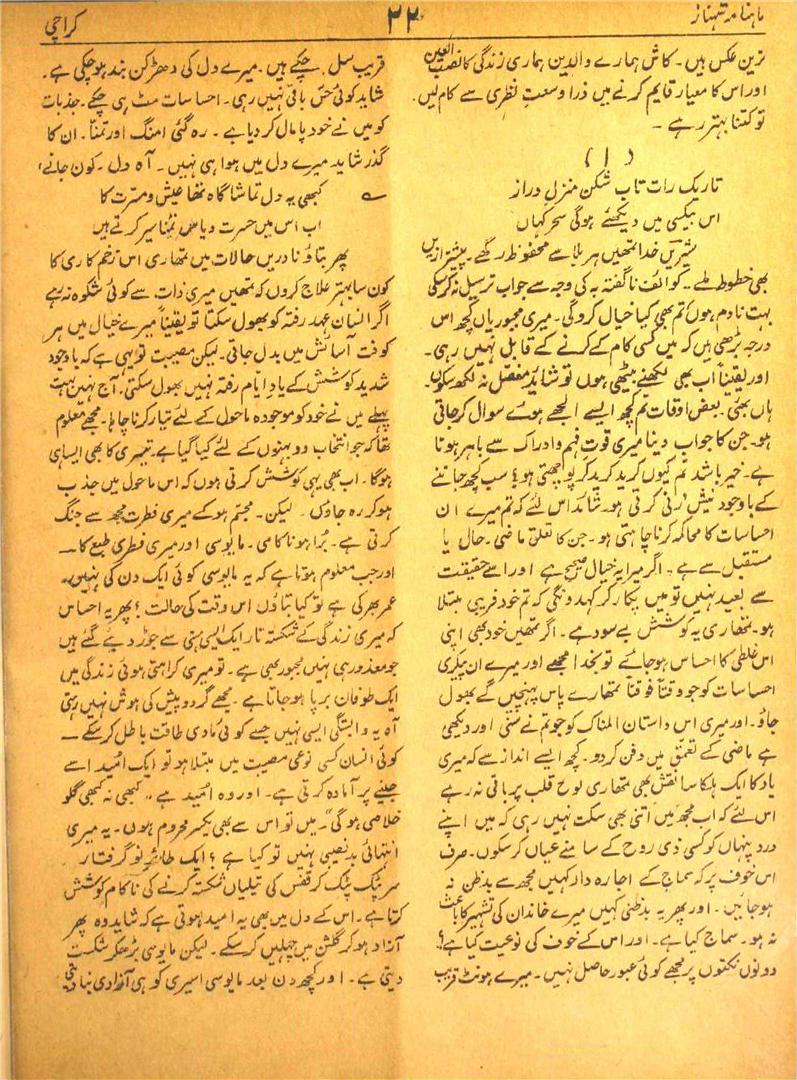 ماہنامہ شہناز
۲۲
کراچی
ترین عکس ہیں۔ کاش ہمارے والدین ہماری زندگی کا نصب العین
اور اس کا معیار قایم کرنے میں ذرا وسعتِ نظری سے کام لیں۔
تو کتنا بہتر رہے ۔
(۱)
تاریک رات تاب شکن منزل دراز
اس بیکسی میں دیکھئے ہوگی سحر کہاں
خدا تمہیں ہر بلا سے محفوظ رکھے۔ پیشتر ازیں
بھی خطوط ملے۔ کوائف ناگفتہ بہ کی وجہ سے جواب ترسیل نہ کر سکی
بہت نادم ہوں تم بھی کیا خیال کرو گی۔ میری مجبوریاں کچھ اس
درجہ بڑھی ہیں کہ میں کسی کام کے کرنے کے قابل نہیں رہی۔
اور یقیناً اب بھی لکھنے بیٹھی ہوں تو شاید مفصل نہ لکھ سکوں۔
ہاں بھئی۔ بعض اوقات تم کچھ ایسے الجھے ہوئے سوال کر جاتی
ہو۔ جن کا جواب دینا میری قوتِ فہم و ادراک سے باہر ہوتا
ہے۔ خیر باشد تم کیوں کرید کرید کر پوچھتی ہو؟ سب کچھ جانتے
کے باوجود نیش زنی کرتی ہو۔ شائد اس لئے کہ تم میرے ان
احساسات کا محاکمہ کرنا چاہتی ہو۔ جن کا تعلق ماضی۔ حال یا
مستقبل سے ہے۔ اگر میرا یہ خیال صحیح ہے اور اسے حقیقت
سے بعید نہیں تو میں پکار کر کہہ دونگی کہ تم خود فریبی میں مبتلا
ہو۔ تمھاری یہ کوشش بے سود ہے۔ اگر تمھیں خود بھی اپنی
اس غلطی کا احساس ہو جائے تو بخدا مجھے اور میرے ان پیکری
احساسات کو جو وقتاً فوقتاً تمھارے پاس پہنچیں گے بھول
جاؤ۔ اور میری اس داستان المناک کو جو تم نے سنی اور دیکھی
ہے ماضی کے تعمق میں دفن کر دو۔ کچھ ایسے انداز سے کہ میری
یاد کا ایک ہلکا سا نقش بھی تمھاری لوح قلب پر باقی نہ رہے
اس لئے کہ اب مجھ میں اتنی بھی سکت نہیں رہی کہ میں اپنے
درد پنہاں کو کسی ذی روح کے سامنے عیاں کر سکوں۔ صرف
اس خوف پر کہ سماج کے اجارہ دار کہیں مجھ سے بدظن نہ
ہو جائیں۔ اور پھر یہ بدظنی کہیں میرے خاندان کی تشہیر کا باعث
نہ ہو۔ سماج کیا ہے۔ اور اس کے خوف کی نوعیت کیا ہے؟
دونوں نکتوں پر مجھے کوئی عبور حاصل نہیں۔ میرے ہونٹ قریب
قریب سل چکے ہیں۔ میرے دل کی دھڑکن بند ہو چکی ہے۔
شاید کوئی حس باقی نہیں رہی۔ احساسات مٹ ہی چکے۔ جذبات
کو میں نے خود پامال کر دیا ہے۔ رہ گئی امنگ اور تمنا۔ ان کا
گذر شاید میرے دل میں ہوا ہی نہیں۔ آہ دل۔ کون جانے،
کبھی یہ دل تماشا گاہ تھا عیش و مسرت کا
اب اس میں حسرت و یاس تمنا سیر کرتے ہیں
پھر بتاؤ نا دریں حالات میں تمھاری اس زخم کاری کا
کون سا بہتر علاج کروں کہ تمھیں میری ذات سے کوئی شکوہ نہ رہے
اگر انسان عہد رفتہ کو بھول سکتا تو یقیناً میرے خیال میں ہر
کوفت آسائش میں بدل جاتی۔ لیکن مصیبت تو یہی ہے کہ باوجود
شدید کوشش کے یادِ ایام رفتہ نہیں بھول سکتی۔ آج نہیں بہت
پہلے میں نے خود کو موجودہ ماحول کے لئے تیار کرنا چاہا۔ مجھے معلوم
تھا کہ جو انتخاب دو بہنوں کے لئے کیا گیا ہے۔ تیسری کا بھی ایسا ہی
ہوگا۔ اب بھی یہی کوشش کرتی ہوں کہ اس ماحول میں جذب
ہو کر رہ جاؤں۔ لیکن۔ مجسم ہو کے میری فطرت مجھ سے جنگ
کرتی ہے۔ بُرا ہو ناکامی۔ مایوسی اور میری فطری طبع کا —
اور جب معلوم ہوتا ہے کہ یہ مایوسی کوئی ایک دن کی نہیں۔
عمر بھر کی ہے تو کیا بتاؤں اس وقت کی حالت؟ پھر یہ احساس
کہ میری زندگی کے شکستہ تار ایک ایسی ہستی سے جوڑ دیئے گئے ہیں
جو معذور ہی نہیں مجبور بھی ہے۔ تو میری کراہتی ہوئی زندگی میں
ایک طوفان برپا ہو جاتا ہے۔ مجھے گرد و پیش کی ہوش نہیں رہتی
آہ یہ وابستگی ایسی نہیں جسے کوئی مادی طاقت باطل کر سکے —
کوئی انسان کسی نوعی مصیبت میں مبتلا ہو تو ایک اُمید اسے
جینے پر آمادہ کرتی ہے۔ اور وہ اُمید ہے "کبھی نہ کبھی گلو
خلاصی ہوگی"۔ میں تو اس سے بھی یکسر محروم ہوں۔ یہ میری
انتہائی بدنصیبی نہیں تو کیا ہے؟ ایک طائر نو گرفتار
سر پٹک پٹک کر قفس کی تیلیاں شکستہ کرنے کی ناکام کوشش
کرتا ہے۔ اس کے دل میں بھی یہ امید ہوتی ہے کہ شاید وہ پھر
آزاد ہو کر گلشن میں چہلیں کر سکے۔ لیکن مایوسی بڑھ کر شکست
دیتی ہے۔ اور کچھ دن بعد مایوسی اسیری کو ہی آزادی بنا دیتی